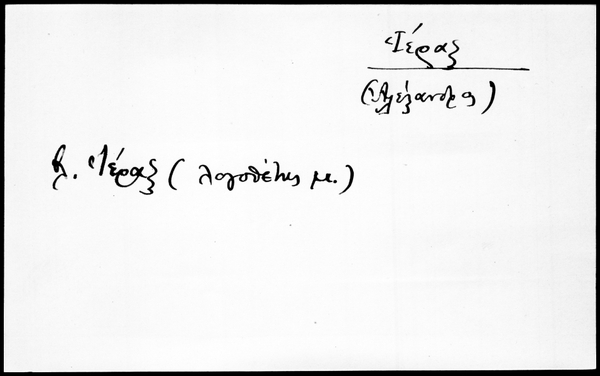 Ἱέραξ
(Ἀλέξανδρος)
β. Ἱέραξ (λογοθέτης μ.)